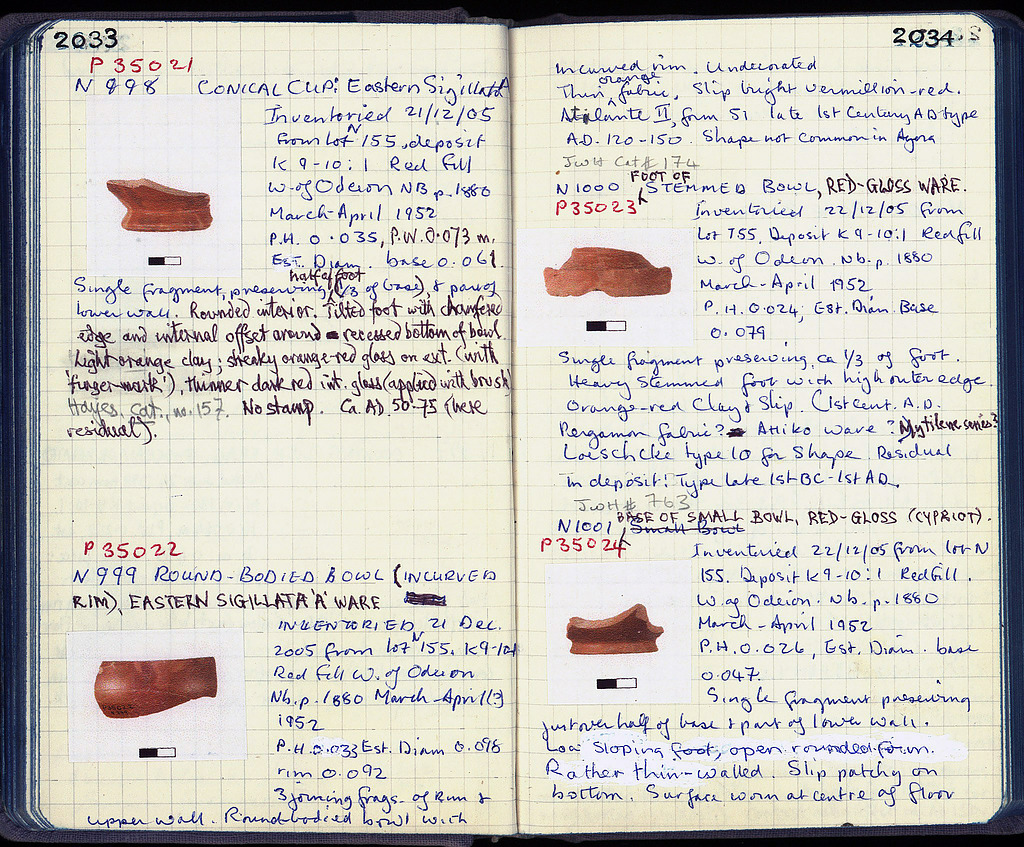 2033
P 35021
N 998 CONICAL CUP: Eastern Sigillata A
Inventoried 21/12/05
From Lot N 155, deposit
K 9-10:1 Red fill
W. of Odeion NB p. 1880
March-April 1952
P.H. 0.035, P.W. 0.073 m.
Est. Diam. base 0.061.
half of foot
Single fragment, preserving (1/3 of base), & part of
lower wall. Rounded interior. Tilted foot with chamfered
edge and internal offset around recessed bottom of bowl.
Light orange clay; streaky orange-red gloss on ext. (with
'finger-mark'), thinner dark red int. gloss (applied with brush)
Hayes, cat. no. 157. No stamp. Ca. A.D. 50-75 (here
residual).
P 35022
N 999 ROUND-BODIED BOWL (INCURVED
RIM), EASTERN SIGILLATA 'A' WARE
INVENTORIED 21 Dec.
2005 from Lot N 155. K 9-10:1
Red fill W. of Odeion
Nb. p. 1880 March-April (?)
1952
P.H. 0.033 Est. Diam 0.098
rim 0.092
3 joining frags. of rim &
upper wall. Round-bodied bowl with
2034
Incurved rim. Undecorated
orange
Thin fabric, Slip bright vermillion-red.
Atlante II, form 51 late 1st Century AD type
A.D. 120-150. Shape not common in Agora
JWH Cat # 174
FOOT OF
N 1000 STEMMED BOWL, RED-GLOSS WARE.
P 35023
Inventoried 22/12/05 from
Lot 155, Deposit K 9-10:1 Red fill
W. of Odeon. Nb. p. 1880
March-April 1952
P.H. 0.024, Est. Diam. Base
0.079
Single fragment preserving ca 1/3 of foot.
Heavy Stemmed foot with high outer edge.
Orange-red Clay & Slip. (1st cent. A.D.
Pergamon fabric? Attiko ware? Mytilene series?
Loeschcke type 10 for Shape. Residual
in deposit: Type late 1st BC-1st AD.
JWH # 763
BASE OF SMALL BOWL, RED-GLOSS (CYPRIOT).
N 1001, Small Bowl
P 35024
Inventoried 22/12/05 from Lot N
155. Deposit K 9-10:1 Red Fill.
W. of Odeion. Nb. p. 1880
March-April 1952
P.H. 0.026, Est. Diam. base
0.047.
Single fragment preserving
just over half of base & part of lower wall.
Low sloping foot, open rounded form.
Rather thin-walled. Slip patchy on
bottom. Surface worn at centre of floor